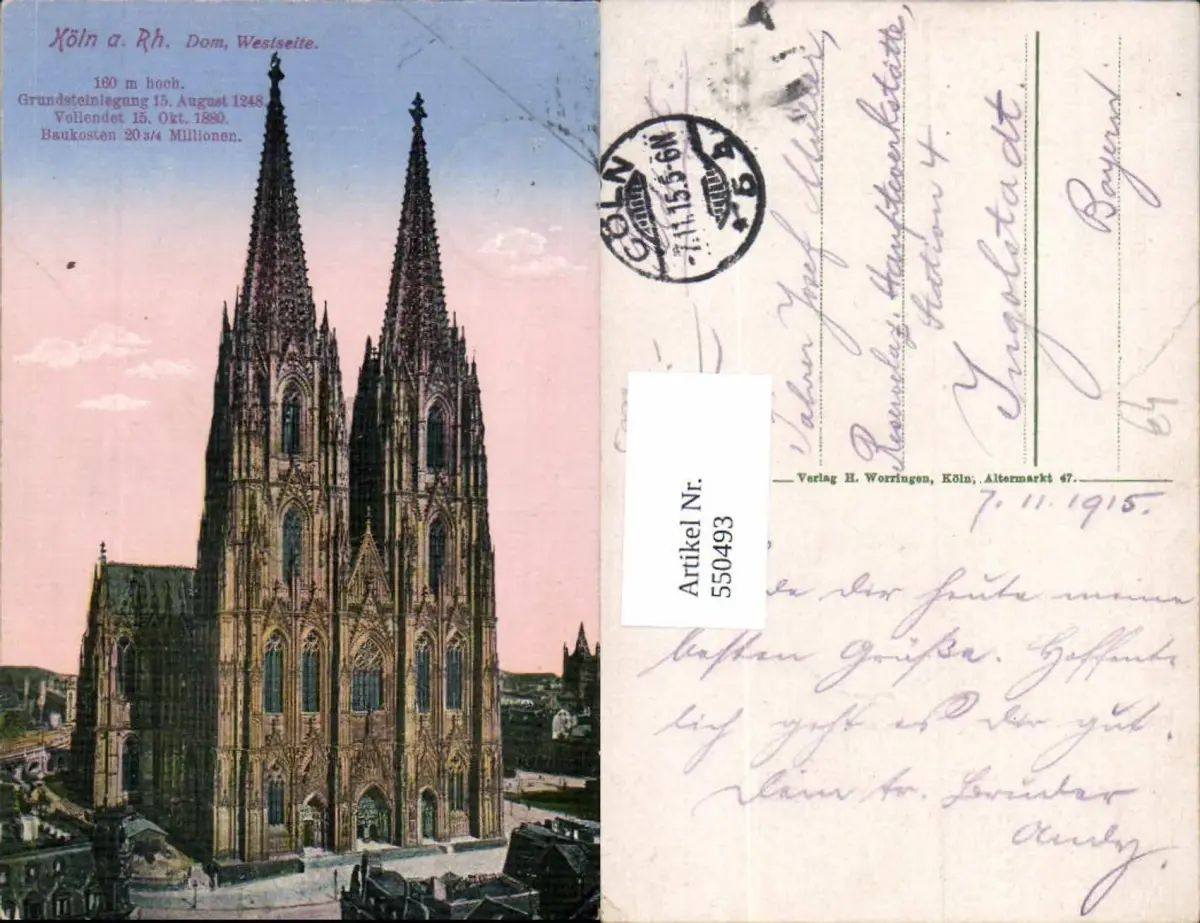 Köln a. Rh. Dom, Westseite.
160 m hoch.
Grundsteinlegung 15. August 1248.
Vollendet 15. Okt. 1880.
Baukosten 20 3/4 Millionen.
CÖLN
7.11.15.5-6N
* 5 d
Josef
Hauptwerkstätte,
Station 4.
Ingolstadt.
Bayern.
64
Verlag H. Worringen, Köln, Altermarkt 47.
Artikel Nr.
550493
7. 11. 1915.
Dir heute meine
besten Grüße. Hoffent
lich geht es Dir gut.
Dein tr. Bruder
Andy.